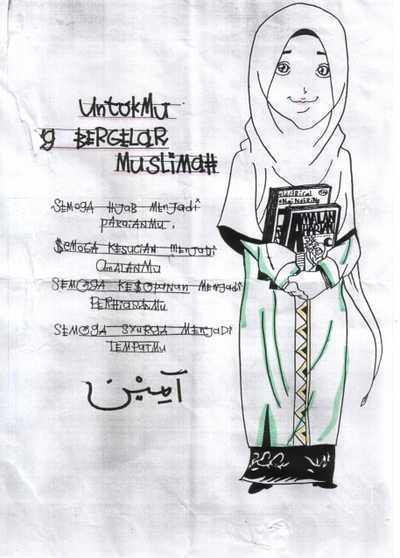 UntukMu
yg BERGELAR
MusLiMaH
SEMOGA HIJAB MENJADi
PAKAiANMU.
SEMOGA KESUCiAN MENJADi
AMALANMU
SEMOGA KESOPANAN MENJADi
PERHIASANMU
SEMOGA SYURGA MENJADi
TEMPATMU
آمِيْن
AMALAN